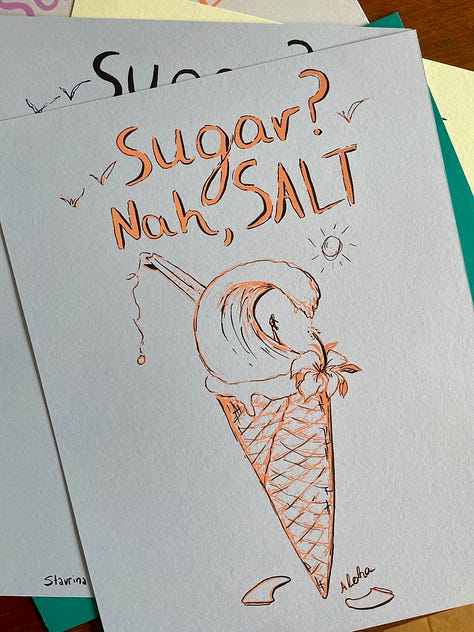 Sugar?
Sugar?
Nah, SALT
Aloha
Stavrina